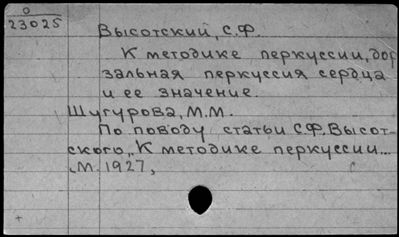 0
23025
Высотский, С.Ф.
К методике перкуссии, дор
зальная перкуссия сердца
и ее значение.
Шугурова, М.М.
По поводу статьи С.Ф. Высот-
ского, "К методике перкуссии...
М. 1927,